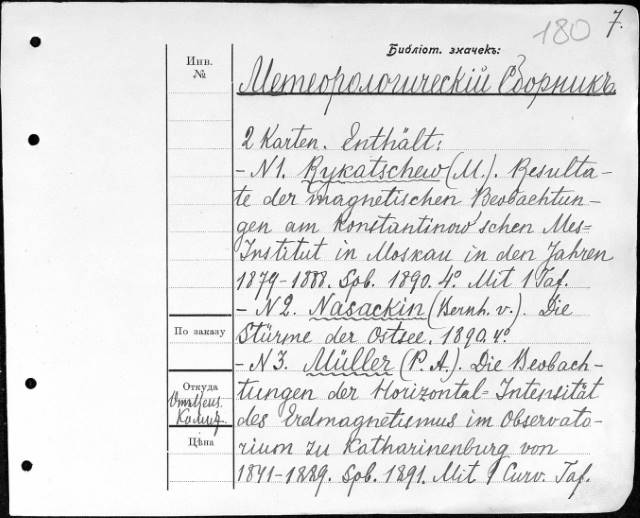 180 7.
Библіот. значекъ:
Инв.
№
Метеорологическій Сборникъ
2 Karten. Enthält:
- N1. Rykatschew (M.). Resulta-
te der magnetischen Beobachtun-
gen am Konstantinow'schen Mes-
Institut in Moskau in den Jahren
1879-1888. Spb. 1890. 4°. Mit 1 Taf.
- N2. Nasackin (Bernh. v.). Die
Stürme der Ostsee. 1890. 4°
По заказу
- N3. Müller (P. A.). Die Beobach-
Откуда
tungen der Horizontal-Intensität
des Erdmagnetismus im Observato-
Цѣна
rium zu Katharinenburg von
1841-1889. Spb. 1891. Mit 1 Curv. Taf.